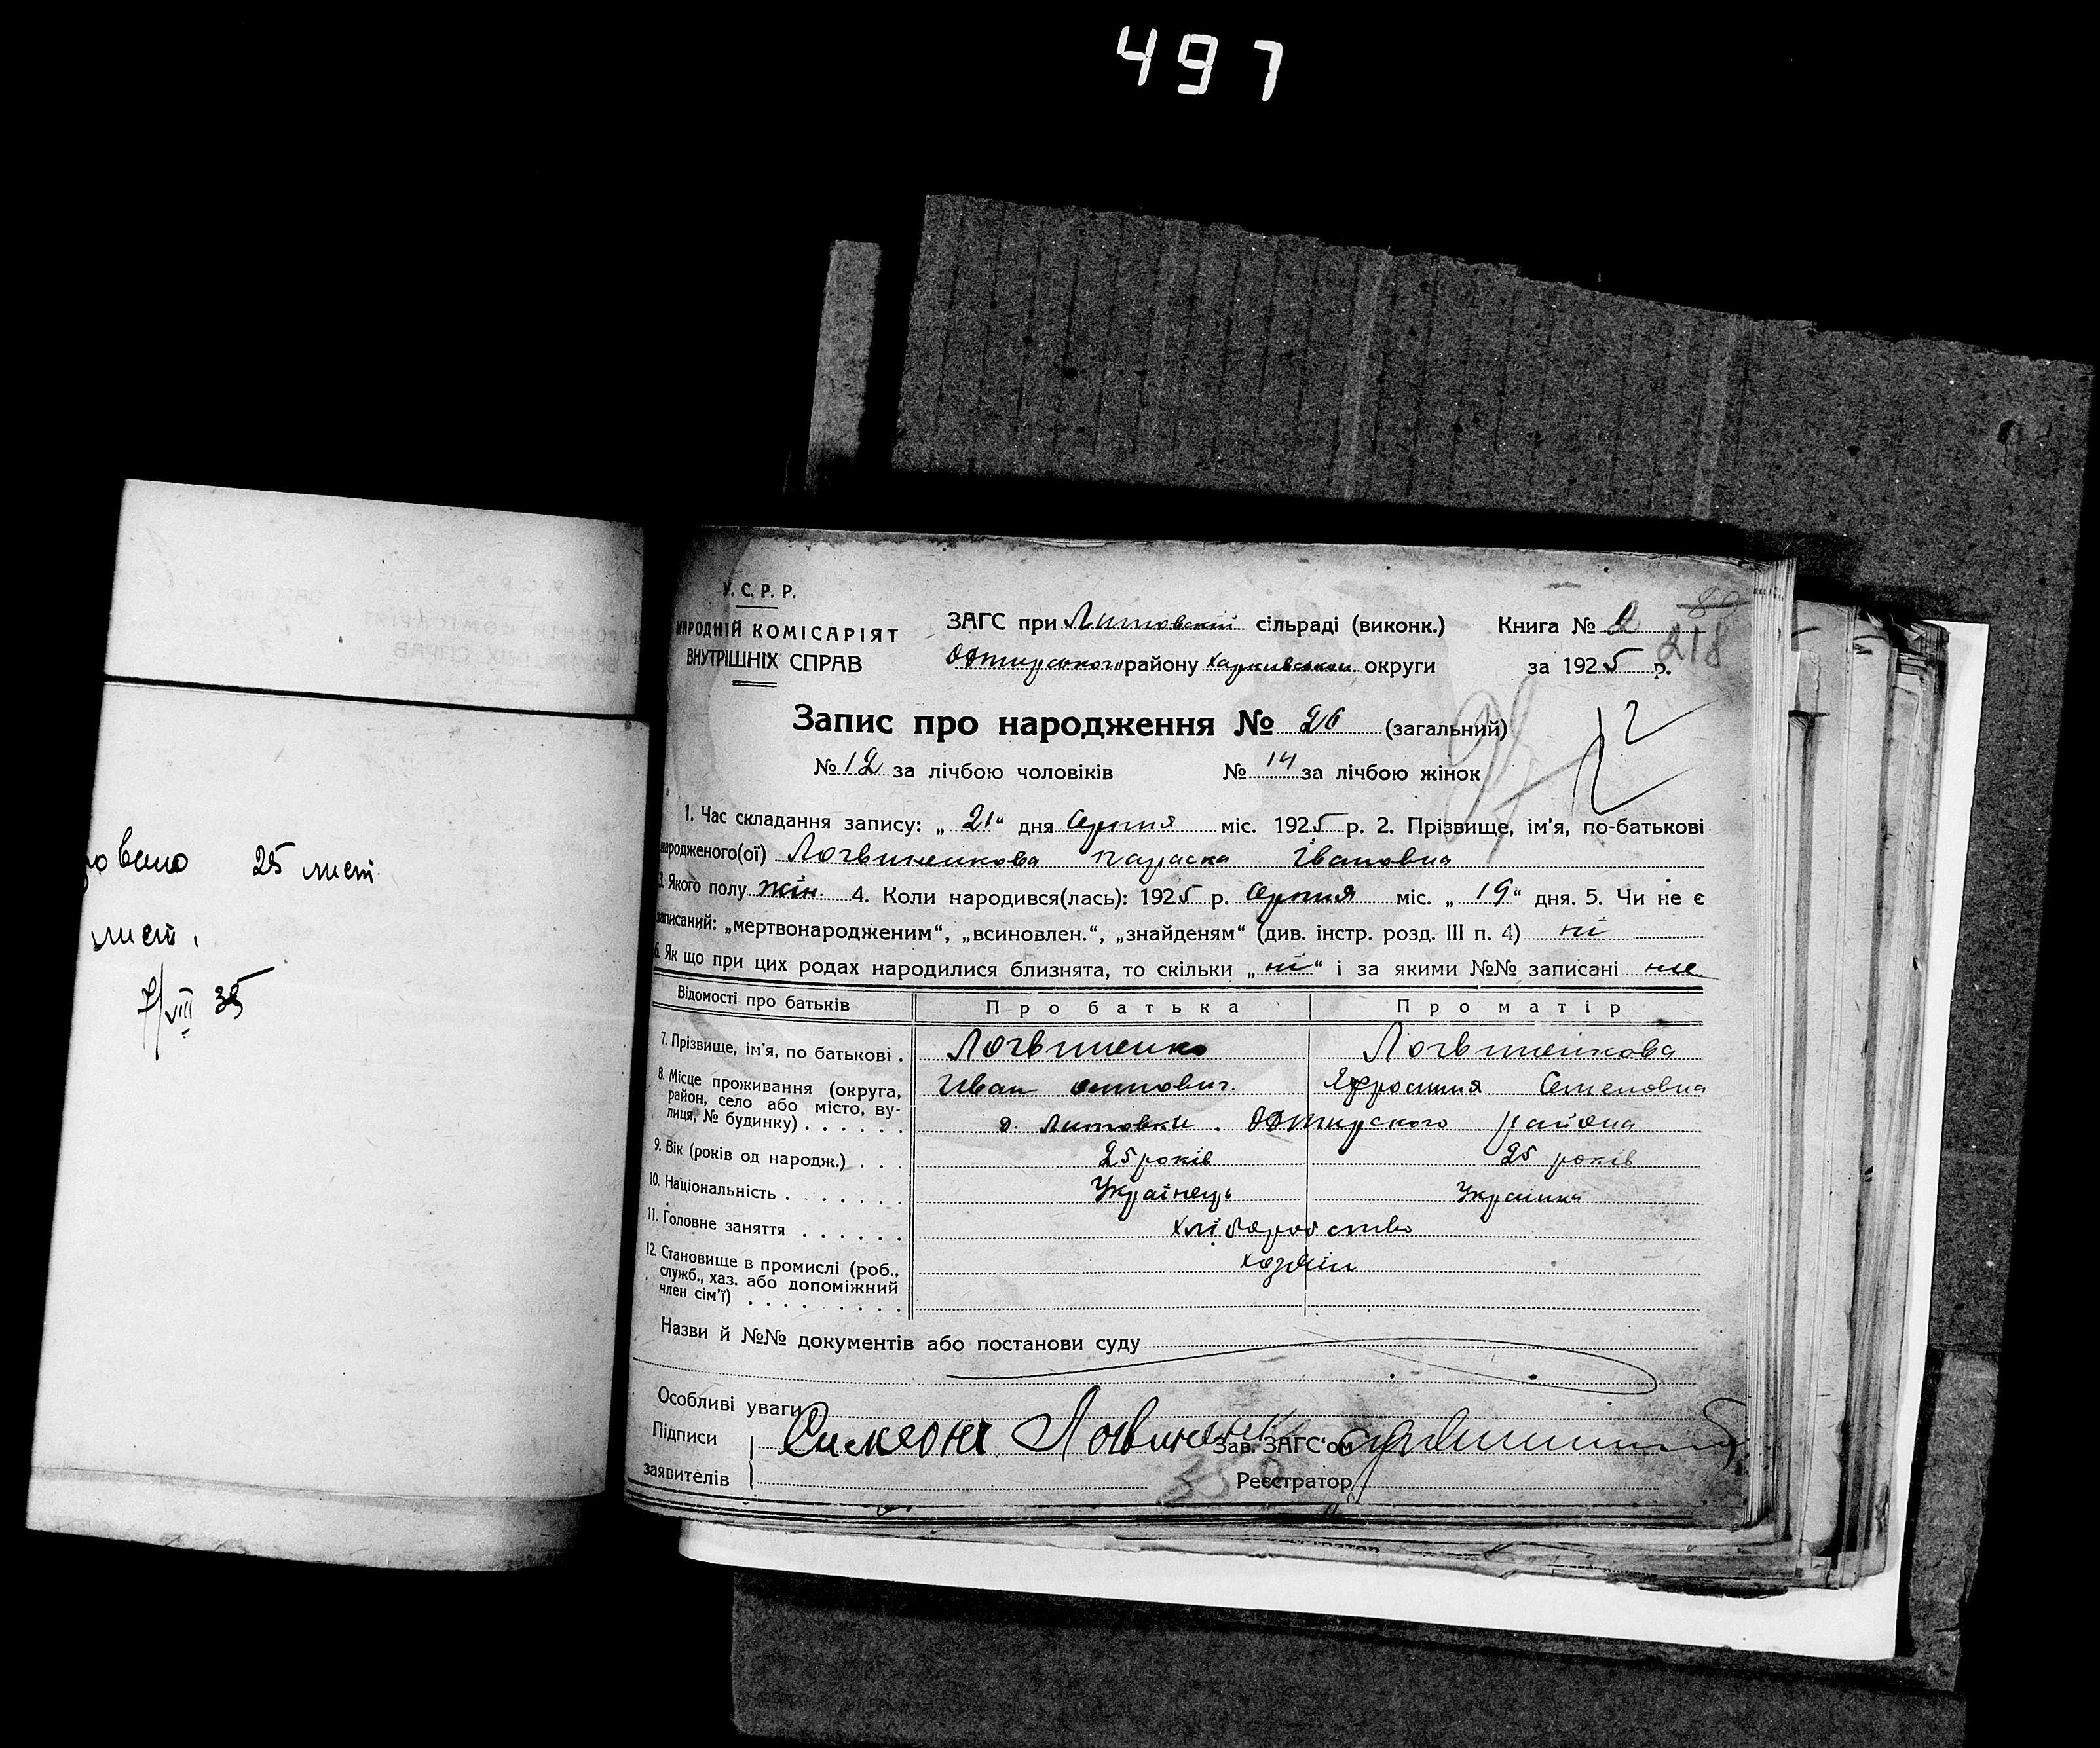 497
овано 25 лист
лист.
7/VIII 35
У. С. Р. Р.
НАРОДНІЙ КОМІСАРІЯТ
ВНУТРІШНІХ СПРАВ
ЗАГС при Литовській сільраді (виконк.) Книга № 2
Охтирського району Харківської округи за 1925 р.
218
Запис про народження № 26 (загальний)
№ 12 за лічбою чоловіків № 14 за лічбою жінок
12
1. Час складання запису: „21“ дня Серпня міс. 1925 р. 2. Прізвище, ім'я, по-батькові
народженого(ої) Логвиненкова Параска Івановна
3. Якого полу жін. 4. Коли народився(лась): 1925 р. Серпня міс. „19“ дня. 5. Чи не є
записаний: „мертвонародженим“, „всиновлен.“, „знайденям“ (див. інстр. розд. III п. 4) ні
6. Як що при цих родах народилися близнята, то скільки „ні“ і за якими №№ записані не
Відомості про батьків Про батька Про матір
7. Прізвище, ім'я, по батькові . Логвиненко Логвиненкова
Иван Семеновна
8. Місце проживання (округа,
район, село або місто, ву-
лиця, № будинку) . . . . . . Литовки. Охтирского района
9. Вік (років од народж.) . . . 25 років 25 років
10. Національність . . . . . . . Українець Українка
11. Головне заняття . . . . . . Хліборобство
12. Становище в промислі (роб.,
служб., хаз. або допоміжний
член сім'ї) . . . . . . . . хозяїн
Назви й №№ документів або постанови суду
Особливі уваги
Підписи
заявителів Логвиненк Зав. ЗАГС'ом
Реєстратор